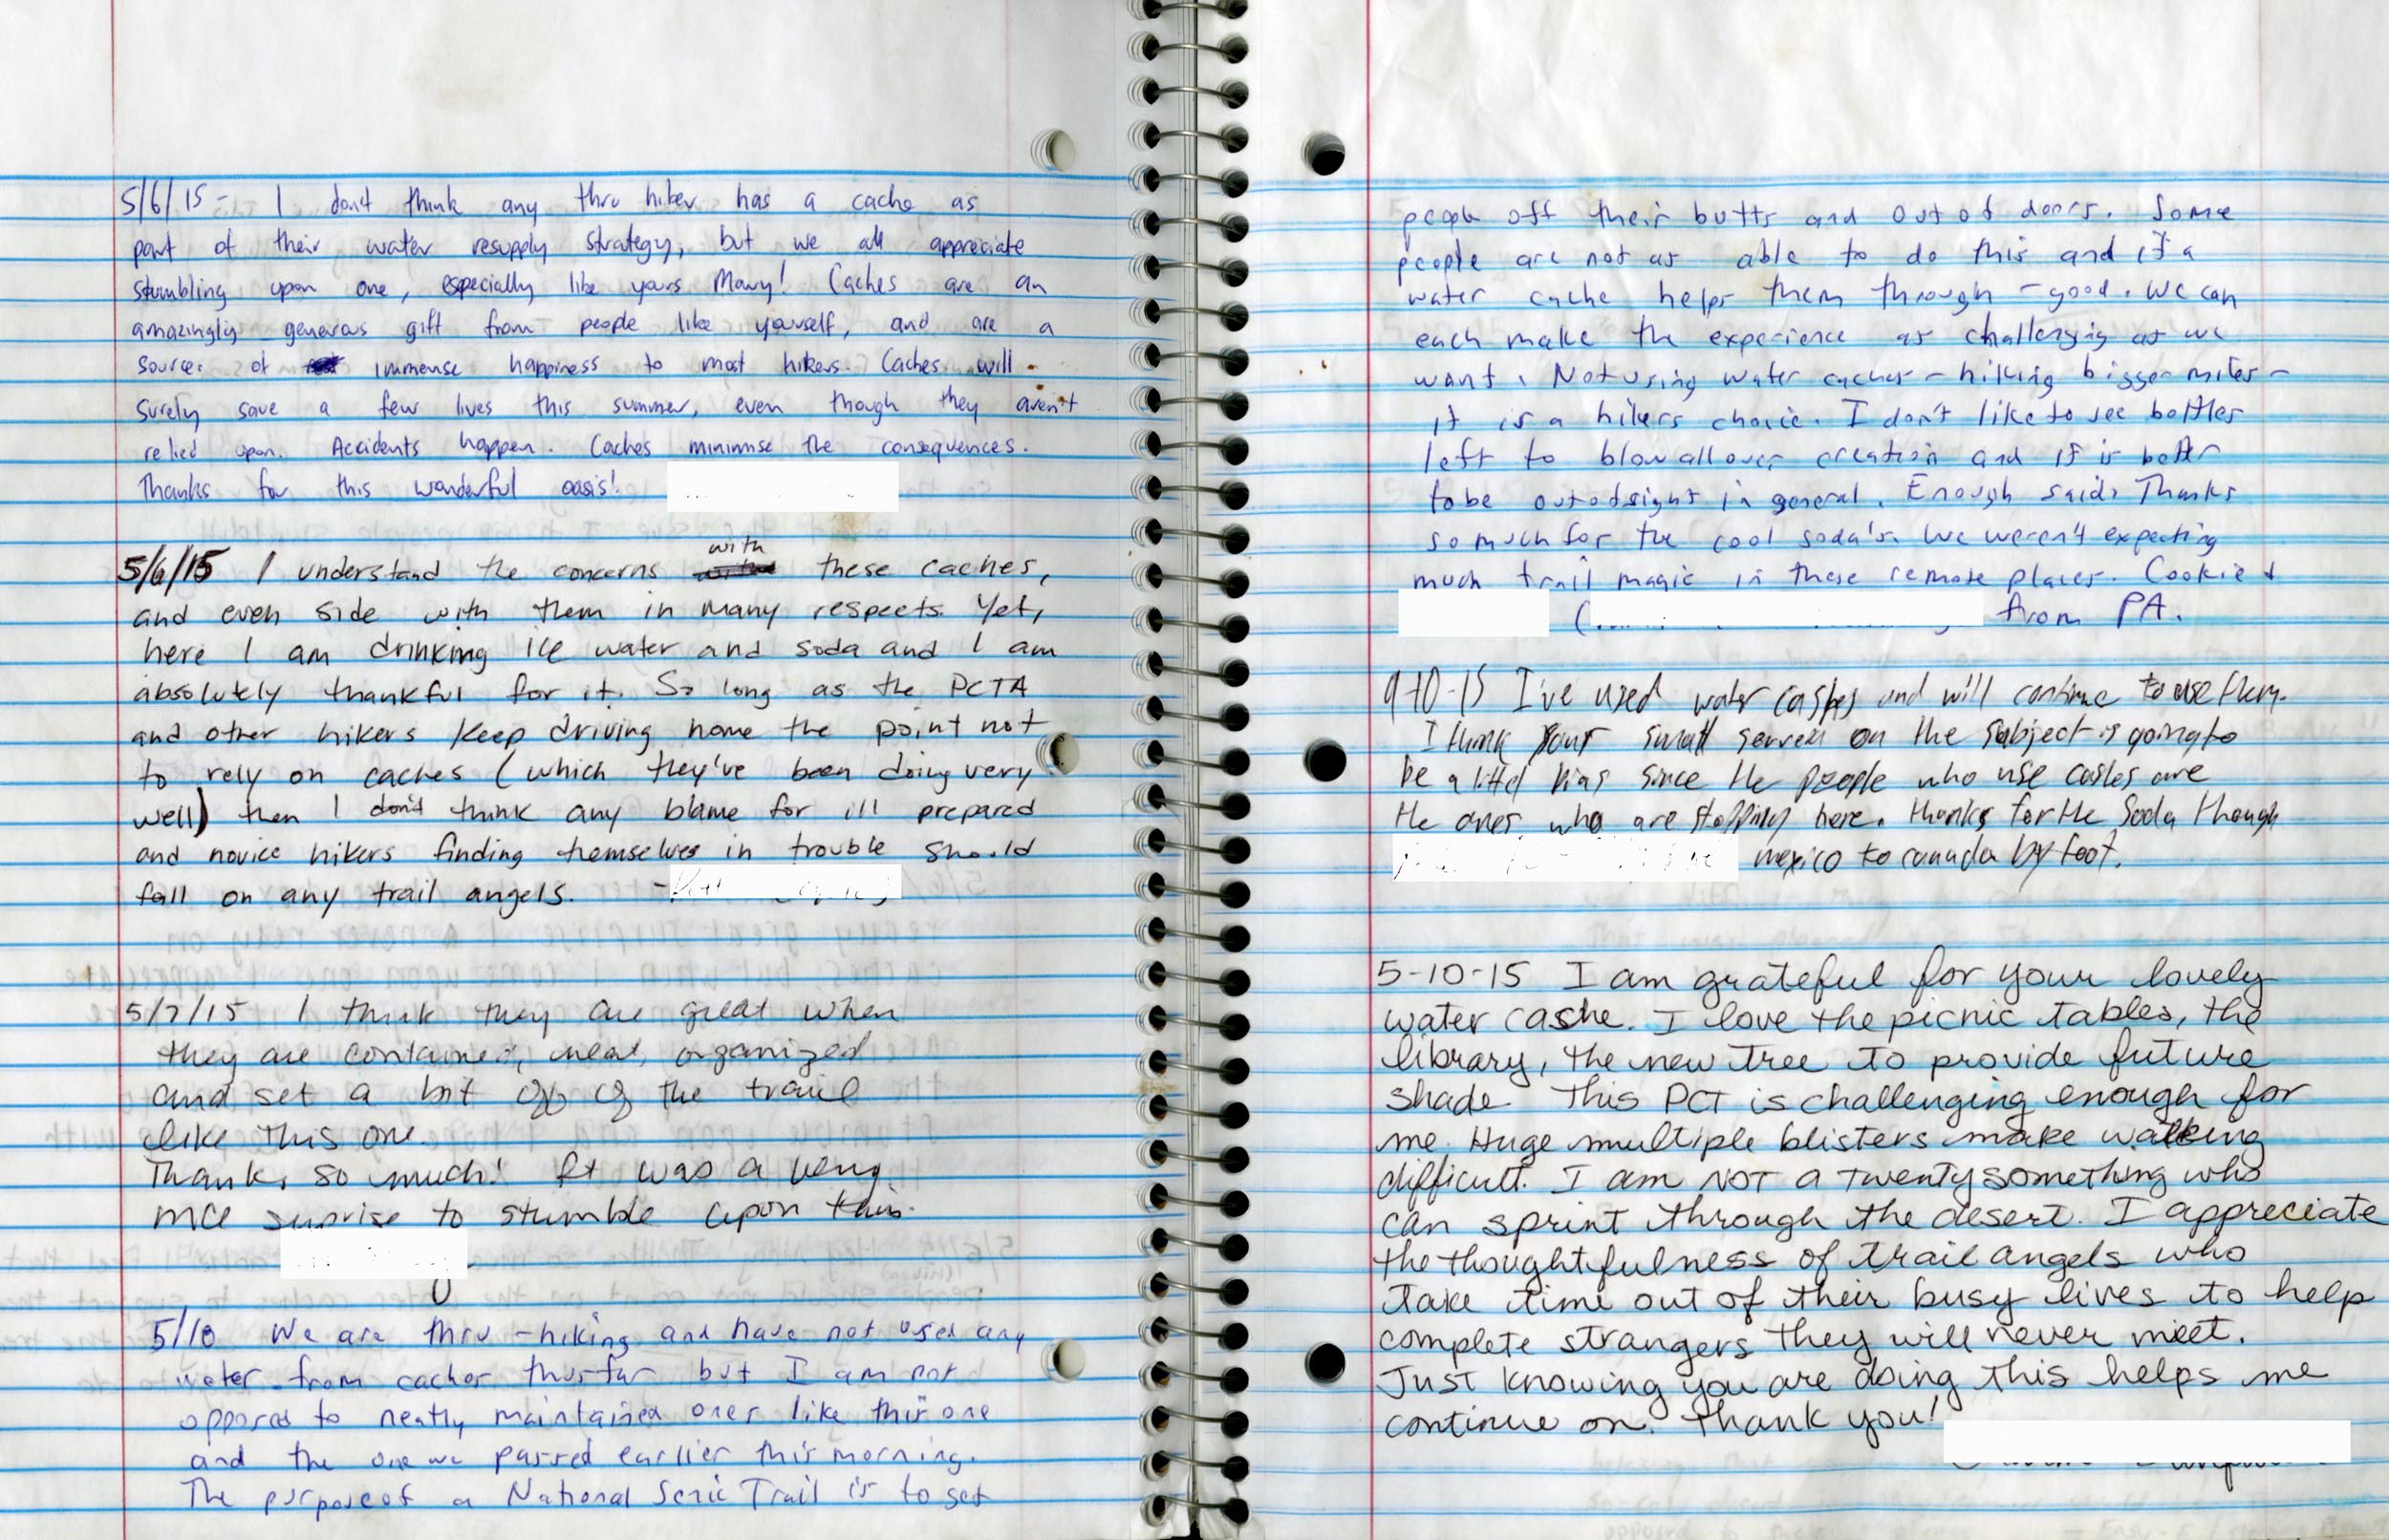 5/6/15 - I don't think any thru hiker has a cache as
part of their water resupply strategy, but we all appreciate
stumbling upon one, especially like yours Mary! Caches are an
amazingly generous gift from people like yourself, and are a
source of immense happiness to most hikers. Caches will
surely save a few lives this summer, even though they aren't
relied upon. Accidents happen. Caches minimise the consequences.
Thanks for this wonderful oasis!
with
5/6/15 I understand the concerns these caches,
and even side with them in many respects. Yet,
here I am drinking ice water and soda and I am
absolutely thankful for it. So long as the PCTA
and other hikers keep driving home the point not
to rely on caches (which they've been doing very
well) then I don't think any blame for ill prepared
and novice hikers finding themselves in trouble should
fall on any trail angels. -
5/7/15 I think they are great when
they are contained, neat, organized
and set a bit off of the trail
like this one.
Thanks so much! It was a very
nice surprise to stumble upon this.
5/10 We are thru-hiking and have not used any
water from caches thusfar but I am not
opposed to neatly maintained ones like this one
and the one we passed earlier this morning.
The purpose of a National Scenic Trail is to get
people off their butts and out of doors. Some
people are not as able to do this and if a
water cache helps them through - good. We can
each make the experience as challenging as we
want. Not using water caches - hiking bigger miles -
it is a hikers choice. I don't like to see bottles
left to blow all over creation and it is better
to be out of sight in general. Enough said. Thanks
so much for the cool soda's. We weren't expecting
much trail magic in these remote places. Cookie &
( from PA.
9-10-15 I've used water cashes and will continue to use them.
I think your small servea on the subject is going to
be a littel bias since the people who use cashes are
the ones who are stopping here. thanks for the soda though
mexico to canada by foot.
5-10-15 I am grateful for your lovely
water cashe. I love the picnic tables, the
library, the new tree to provide future
shade. This PCT is challenging enough for
me. Huge multiple blisters make walking
difficult. I am NOT a twenty something who
can sprint through the desert. I appreciate
the thoughtfulness of trail angels who
take time out of their busy lives to help
complete strangers they will never meet.
Just knowing you are doing this helps me
continue on. Thank you!